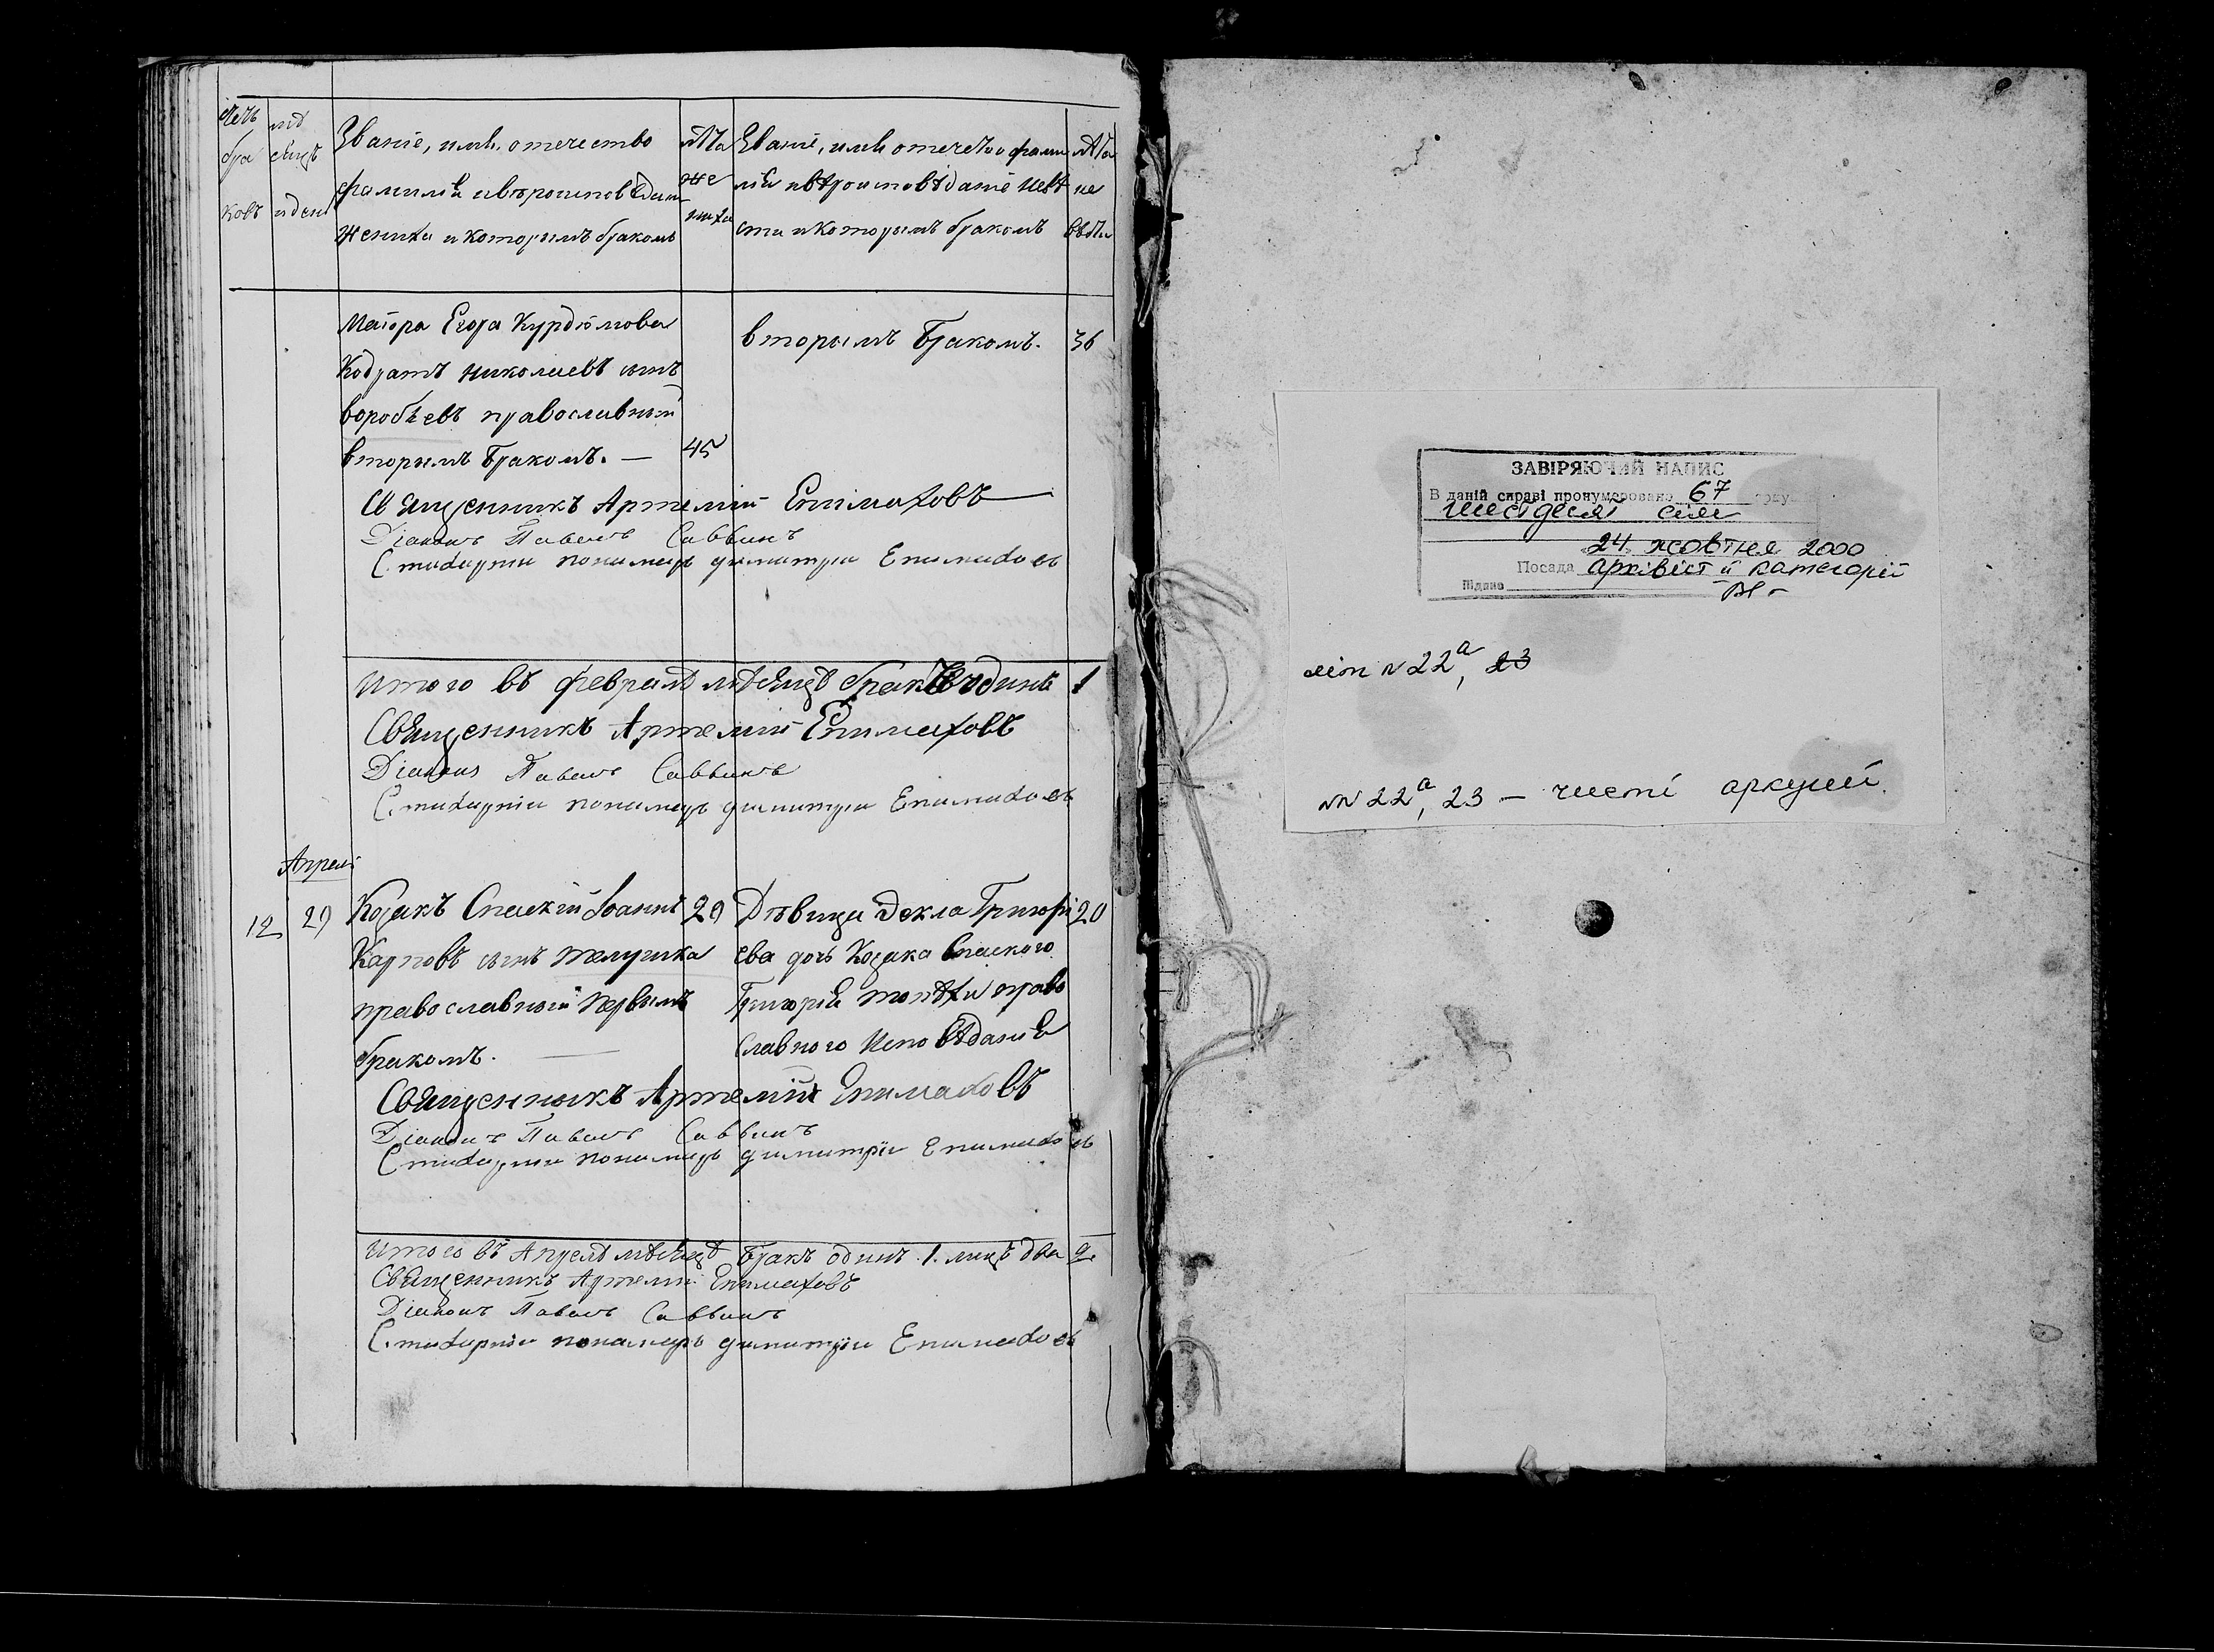 Звание, имя, отечество
фамилия и вероисповедан
жениха и которымъ бракомъ
жениха
Звание, имя отечество фами
лия и вѣроисповѣдание невѣ
сты и которымъ бракомъ
ковъ
и день
Маiора Егора Курдюмова
Кодратъ Николаевъ сынъ
Воробьевъ православный
вторымъ бракомъ. —
45
вторымъ бракомъ.
36
Священникъ Артемiй Епимаховъ
Дiаконъ Павелъ Саввинъ
Стихарный пономарь Димитрий Епимаховъ
Итого въ февралѣ мѣсяцѣ бракъ одинъ 1
Священникъ Артемiй Епимаховъ
Дiаконъ Павелъ Саввинъ
Стихарнiй пономарь Димитрий Епимаховъ
Апрель
12
29
Козакъ Спаскiй Iоаннъ 29
Карповъ сынъ Телушка
православный первымъ
бракомъ.
Дѣвица Фекла Григорi 20
ева дочь Козака Спаского
Григорiя православного исповѣданiя
Священникъ Артемiй Епимаховъ
Дiаконъ Павелъ Саввинъ
Стихарный пономарь Димитрiй Епимаховъ
Итого въ Апрелѣ мѣсяцѣ бракъ одинъ 1. лицъ два 2.
Священникъ Артемiй Епимаховъ
Дiаконъ Павелъ Саввинъ
Стихарнiй пономарь Димитрiй Епимаховъ
ЗАВІРЯЮЧИЙ НАПИС
В даній справі пронумеровано 67
шістдесят сім
24 жовтня 2000
Посада архівіст ІІ категорії
Підпис
літ N 22а, 23
NN 22а, 23 — чисті аркуші.